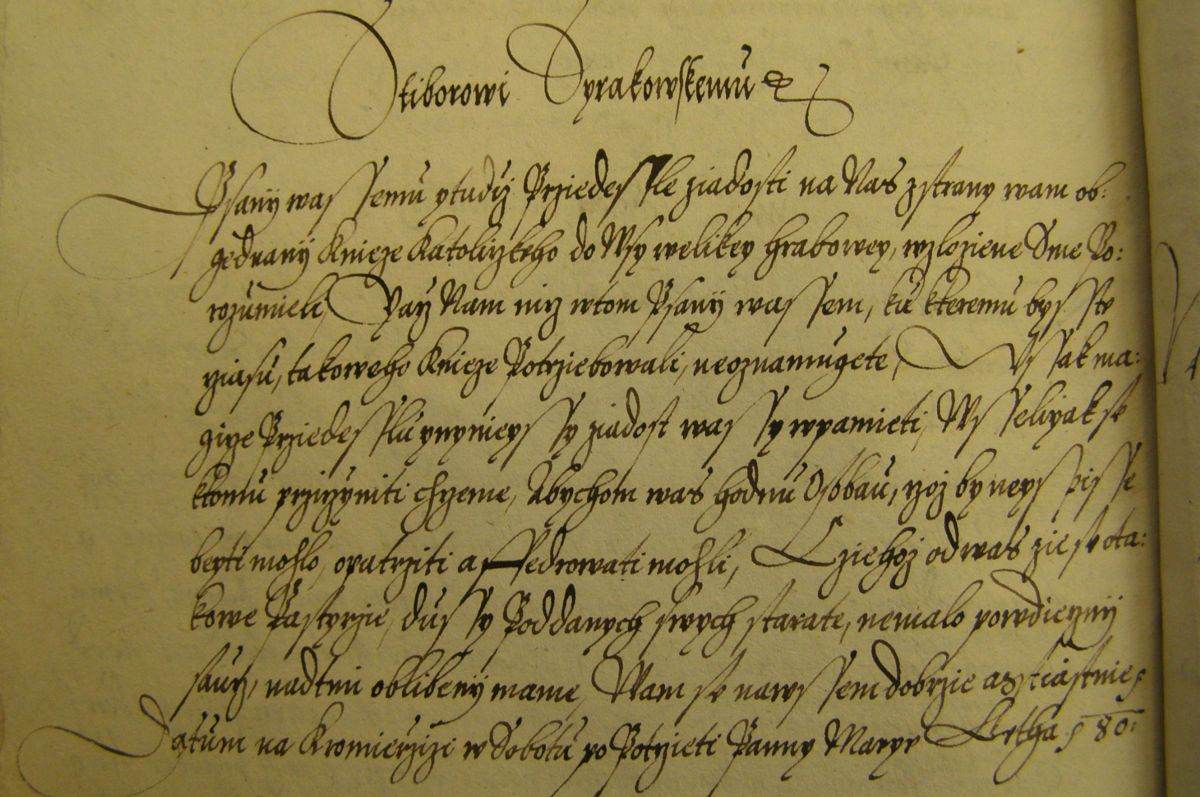 Stiborowi Syrakowskemu &c
Psany wassemu ytudyz Przedessle ziadosti na Nas zstrany wam ob:
gednany Knieze Katolitzkeho do Wsy welikey Hrabowey, wzloziene Sme Po:
rozumieli, Nam nitz wtom Psany wassem, ku kteremu bysste
cziasu, takoweho Knieze Potrziebowali, neoznamugete, Wssak ma:
gitze Przedesslu ynynieyssy ziadost wassy wpamieti, Wsseliyak se
ktomu przicziniti chczeme, Abychom was hodnu Osobau, czoz by neyspisse
beyti mohlo, opatrziti a ffedrowati mohli, Cziehoz od was zie se ota:
kowe Pastyrzie, dussy Poddanych swych starate, nemalo powdieczny
sautz, nadtim oblibeny mame, Wam se nawssem dobrzie a sstiastnie
Datum na Kromierzizi w Sobotu po Potzieti Panny Marye Letha 80: